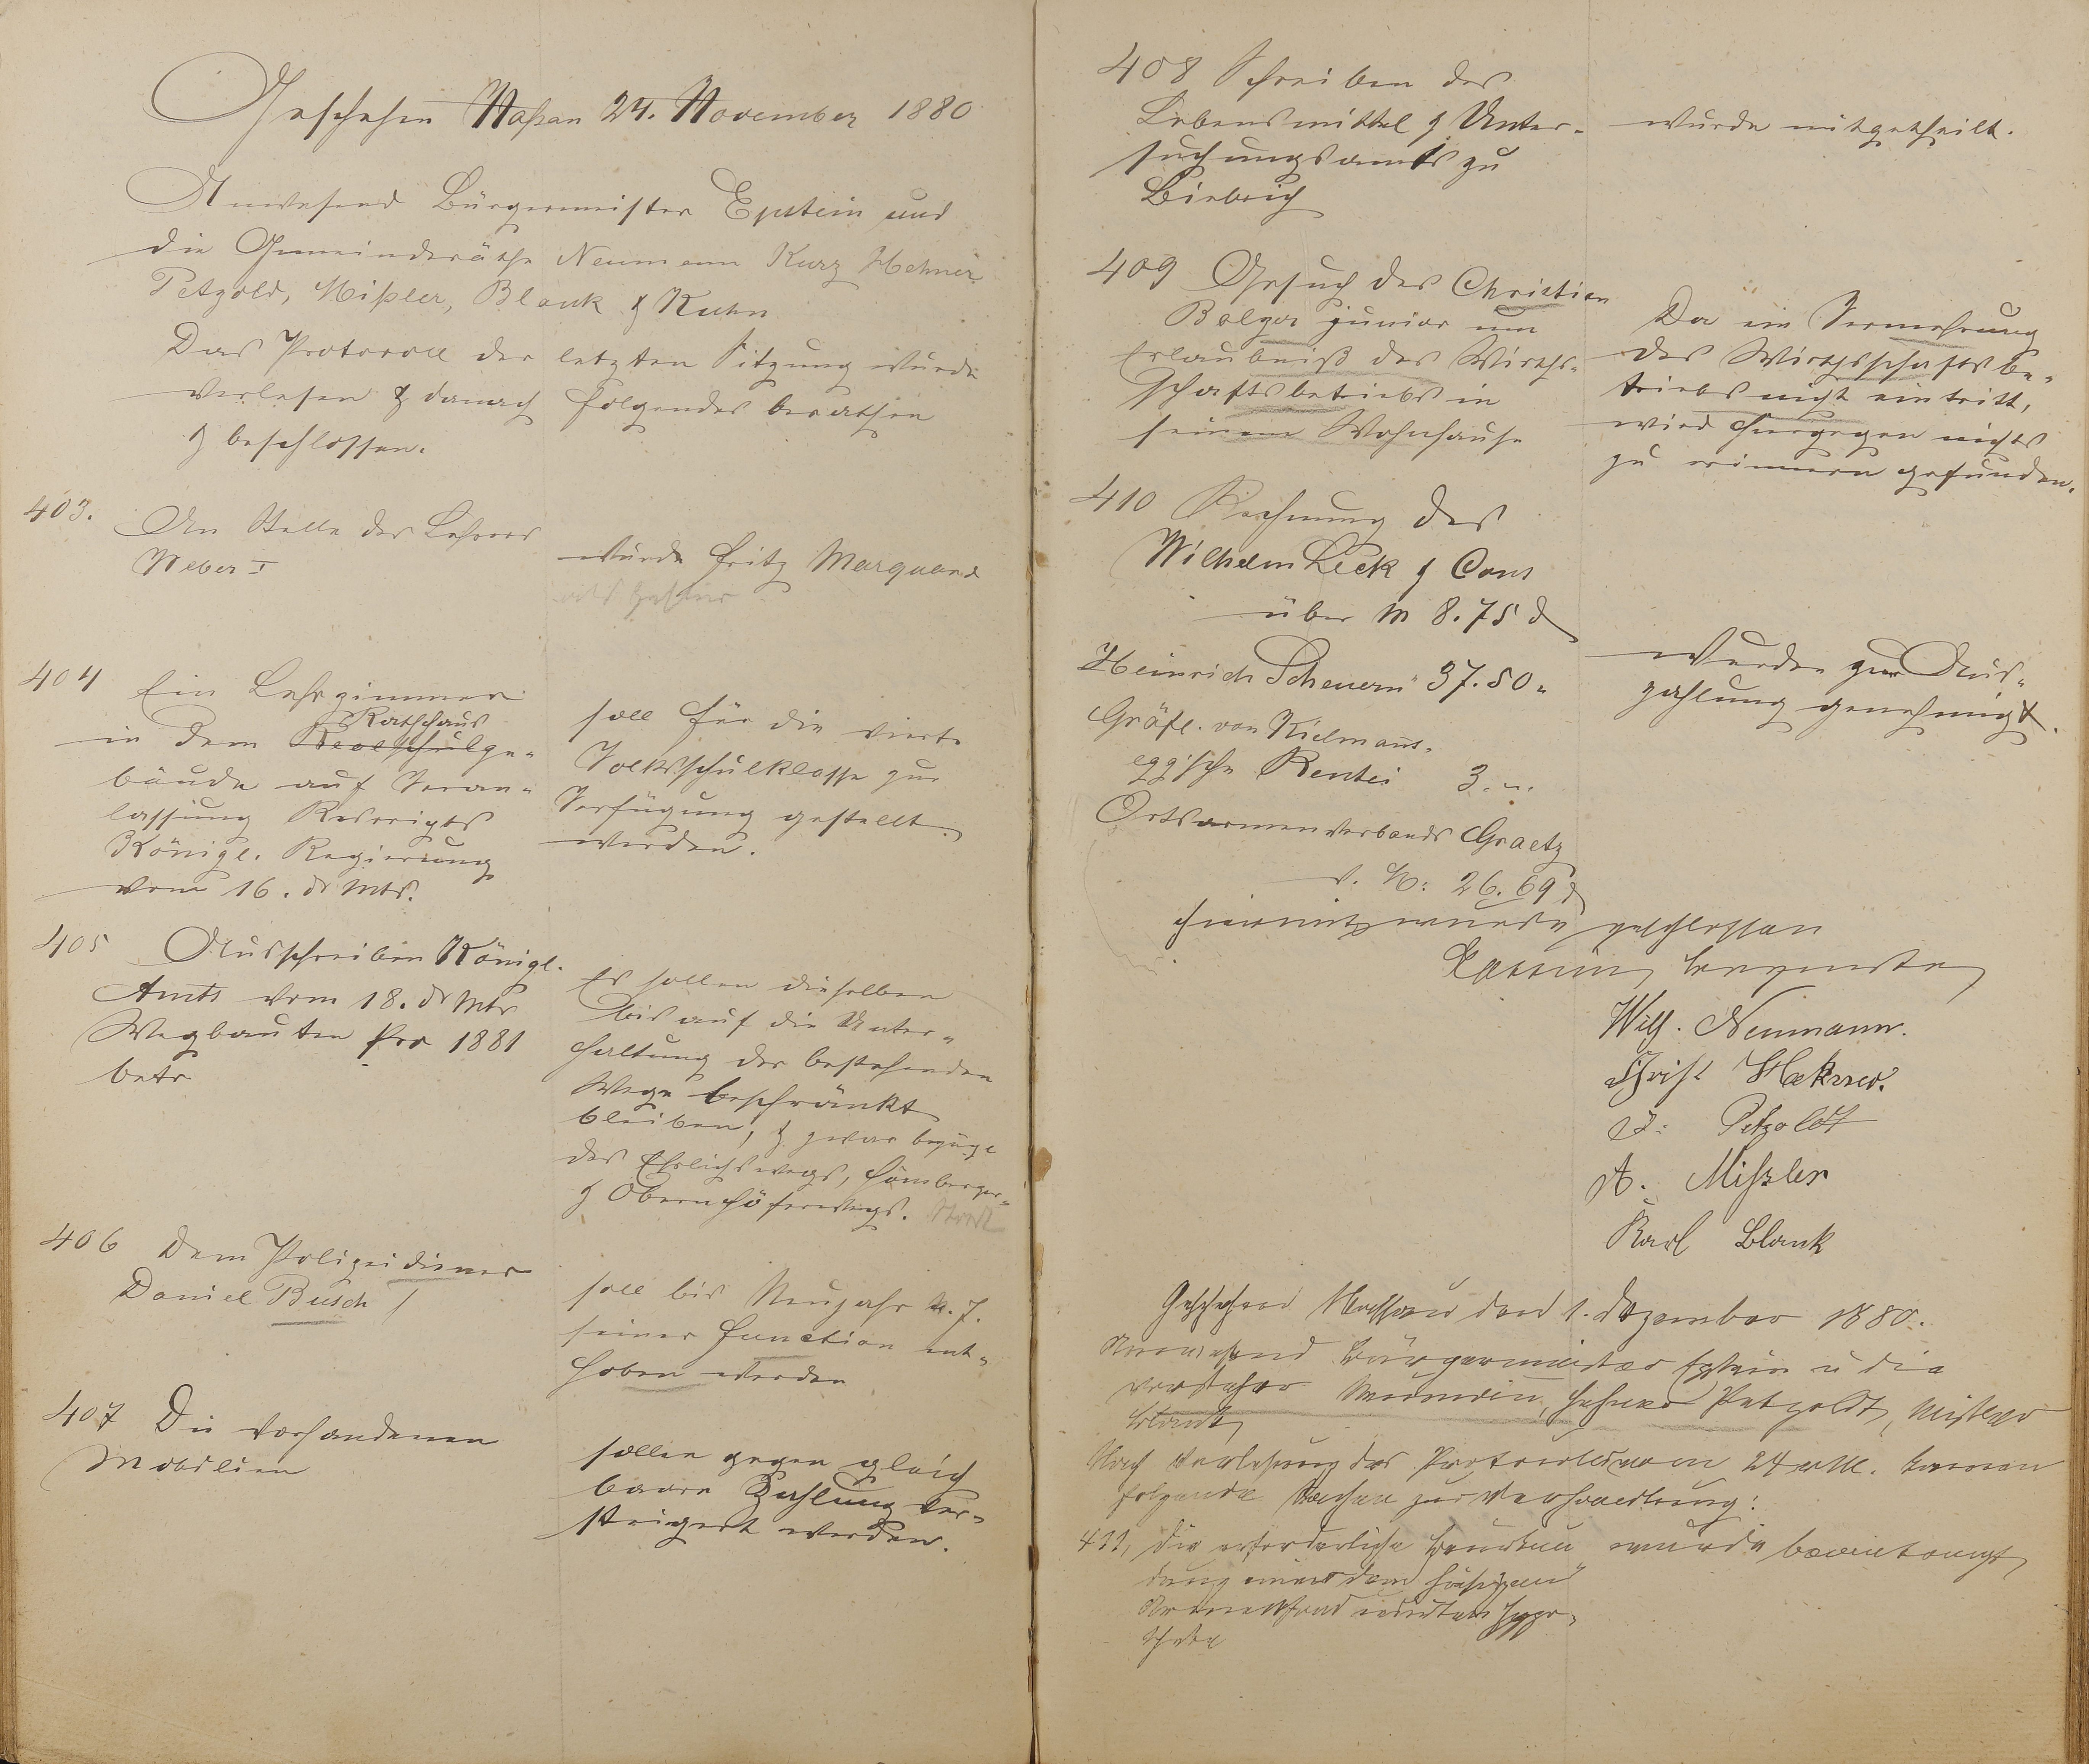 Geschehen Naßau 24. November 1880
Anwesend Bürgermeister Epstein und
die Gemeinderäthe Neumann Kurz Hehner
Petzold, Mißler, Blank & Kuhn
Das Protocoll der letzten Sitzung wurde
verlesen & danach folgendes berathen
& beschlossen.
403.
An Stelle des Lehrers
Weber I
wurde Fritz Marquard
404 Ein Lehrzimmer
Rathhaus
in dem Realschulge-
bäude auf Veran-
lassung Rescripts
Königl. Regierung
vom 16. ds Mts.
soll für die vierte
Volksschulklasse zur
Verfügung gestellt
werden.
405 Ausschreiben Königl.
Amts vom 18. ds Mts
Wegbauten pro 1881
betr
Es sollen dieselben
bis auf die Unter-
haltung der bestehenden
Wege beschränkt
bleiben, & zwar bezügl
des Ehrlichswegs, Hömberger-
& Obernhöferwegs.
406 Dem Polizeidiener
Daniel Busch
soll bis Neujahr k. J.
seiner Function ent-
hoben werden
407 Die vorhandenen
Mobilien
sollen gegen gleich
baare Zahlung ver-
steigert werden.
408 Schreiben des
Lebensmittel & Unter-
suchungsamts zu
Biebrich
wurde mitgetheilt.
409 Gesuch des Christian
Balzer junior um
Erlaubniß des Wirths-
schaftsbetriebs in
seinem Wohnhause
Da ein Vermehrung
des Wirthsschaftsbe-
triebs nicht eintritt,
wird hiergegen nichts
zu erinnern gefunden.
410 Rechnung des
Wilhelm Leck & Cons
über M 8.75 d
Heinrich Scheuern " 37.50 "
Gräfl. von Kielmans-
egg'sche Rentei 3. "
Ortsarmenverbands Graetz
26.69 d
wurden zur Aus-
zahlung genehmigt.
Hiermit wurde geschlossen
Epstein, Bürgermstr
Wilh. Neumann.
Christ Hehner.
J. Petzoldt
A. Miszler
Karl Blank
Geschehen Nassau den 1. Dezember 1880.
Anwesend Bürgermeister Epstein u die
Vorsteher Neumann, Hehner Petzoldt, Mißler
Blank
Nach Verlesung des Protocolls vom 24 v. M. kamen
folgende Sachen zur Verhandlung:
411, Die erforderliche Beurkun
dung einer dem hiesigen
Hypo-
theke
wurde beurkundet